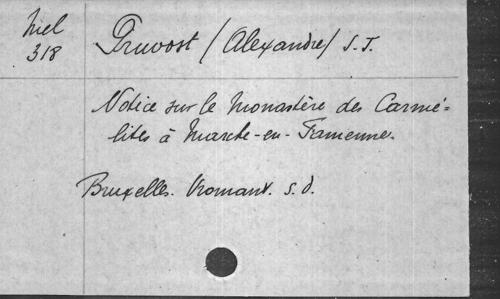 Mel
318
Pruvost (Alexandre) S. J.
Notice sur le Monastère des Carmé=
lites à Marche-en-Famenne.
Bruxelles. Vromant. s. d.